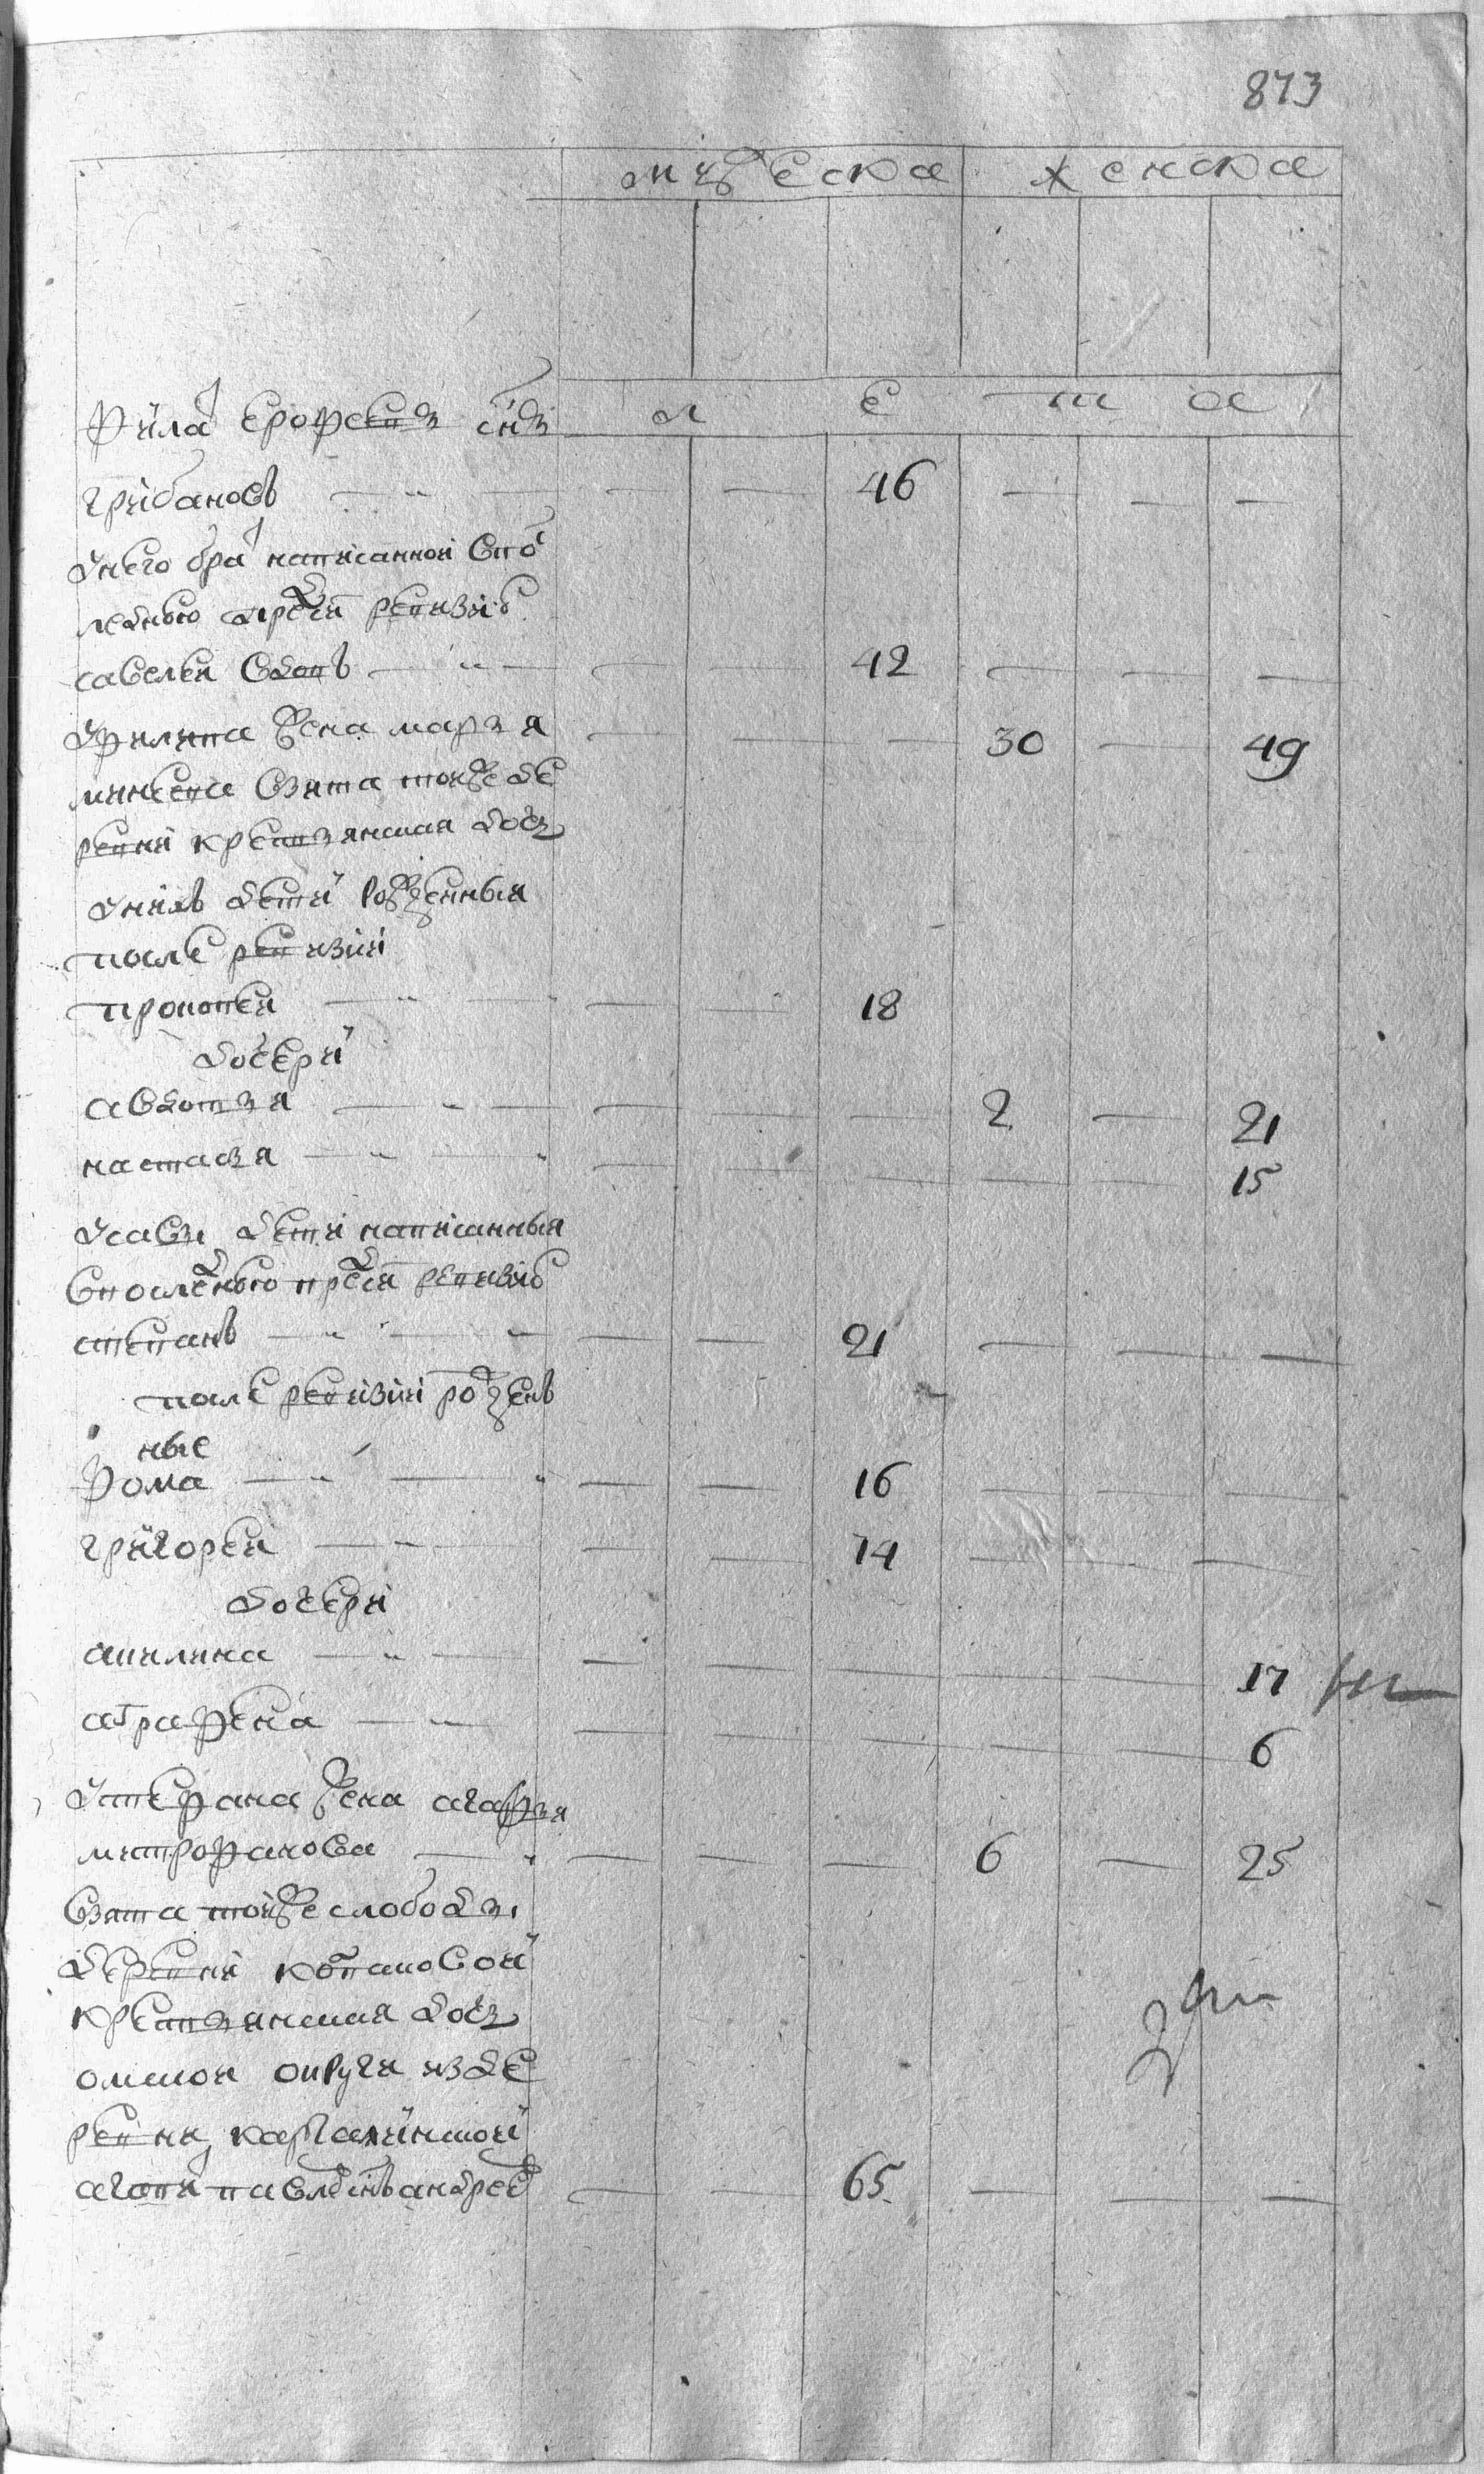 873
мужеска женска
л е т а
Филат ерофеевъ снъ
грибановъ 46
унего брат написанной впо
леднею пред сим ревизию
савелеи вдовъ 42
уфилипа жена марья 30 49
минеева взята тоиже де
ревни крестьянская дочь
уних дети рожденныя
после ревизии
прокопеи 18
дочери
авдотья 2 21
настасья 15
усавы дети написанныя
впоследнею пред сим ревизию
степанъ 21
после ревизии рожденъ
ные
Фома 16
григореи 14
дочери
акилина 17
аграфена 6
устефана жена агафья
митрофанова 6 25
взята тоиже слободы
деревни
крестьянская дочь
омскои округи из де
ревни
агапит павловъ снъ андреев 65